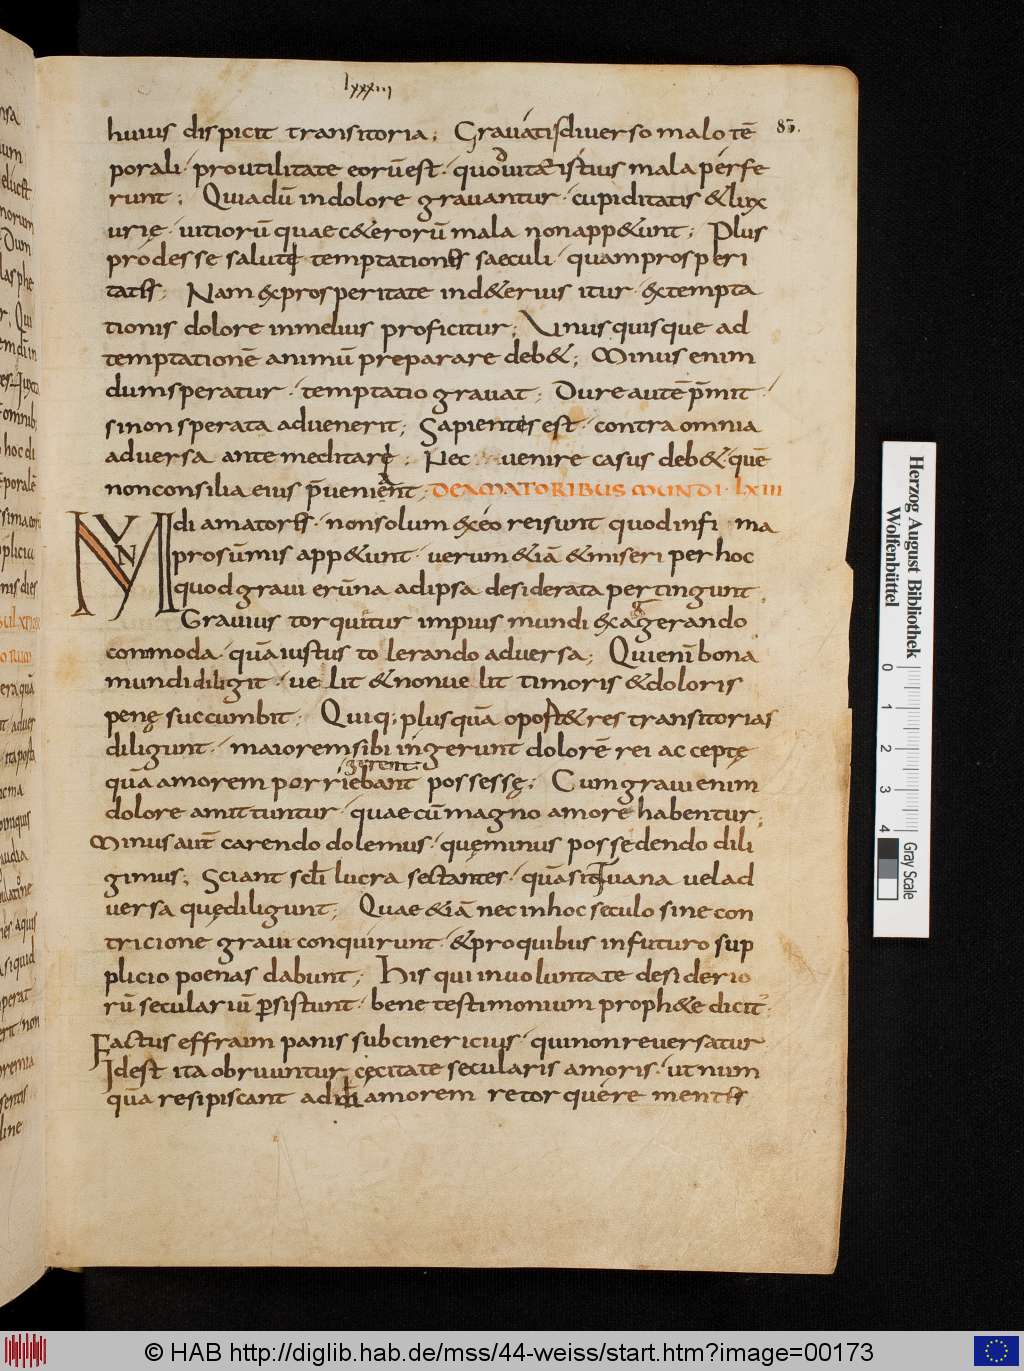 lxxxiii
85.
huius dispicit transitoria; Grauatis diuerso malo tē
porali · pro utilitate eorū est · quo uitae istius mala perfe
runt; Quia dū in dolore grauantur · cupiditatis & lux
urię · uitiorū quae c&erorū mala non app&unt; Plus
prodesse salute temptationis saeculi · quam prosperi
tatis; Nam ex prosperitate in d&erius itur · ex tempta
tionis dolore in melius proficitur; Unusquisque ad
temptationē animū preparare deb&; Minus enim
dum speratur · temptatio grauat; Dure autē p̄mit
si non sperata aduenerit; Sapientis est · contra omnia
aduersa ante meditare; Nec uenire casus deb& · quē
non consilia eius p̄ueniant; DE AMATORIBUS MUNDI · LXIII
MUNdi amatores · non solum ex eo rei sunt quod infi ma
pro sūmis app&unt · uerum &iā & miseri per hoc
quod graui erūna ad ipsa desiderata pertingunt
Grauius torquitur impius mundi exagerando
commoda · quā iustus tolerando aduersa; Qui enī bona
mundi diligit · uelit & non uelit timoris & doloris
penę succumbit; Quiq; plus quā oport& res transitorias
diligunt · maiorem sibi ingerunt dolorē rei acceptę
gerent
quā amorem porriebant possessę; Cum graui enim
dolore amittuntur · quae cū magno amore habentur;
Minus aut̄ carendo dolemus · quę minus possedendo dili
gimus; Sciant sc̄li lucra sectantes · quā sit uana uel ad
uersa quę diligunt; Quae &iā nec in hoc seculo sine con
tricione graui conquirunt · & pro quibus in futuro sup
plicio poenas dabunt; His qui in uoluntate desiderio
rū seculariū p̄sistunt · bene testimonium proph&e dicit;
Factus effraim panis subcinericius · qui non reuersatur
Id est ita obruuntur cęcitate secularis amoris · ut num
quā resipiscant ad di amorem retorquere mentis
Herzog August Bibliothek
Wolfenbüttel
0 1 2 3 4
Gray Scale
© HAB http://diglib.hab.de/mss/44-weiss/start.htm?image=00173